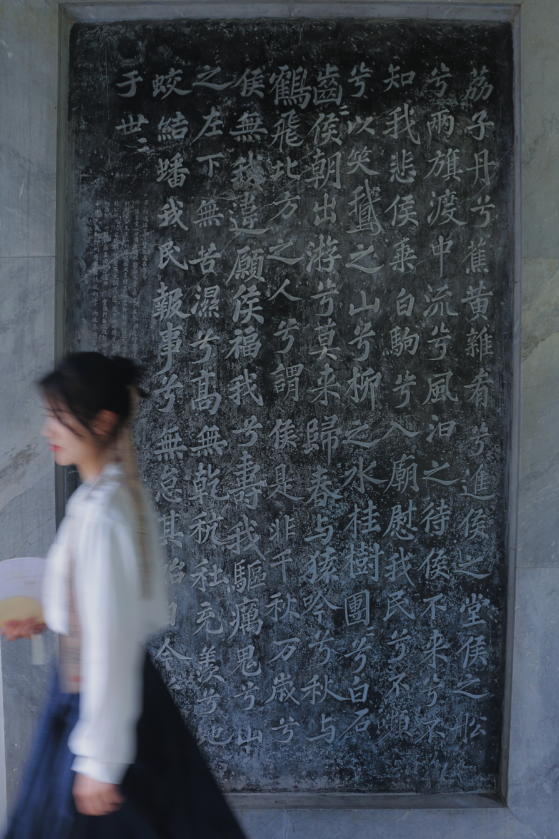 荔子丹兮蕉黄雜肴兮進侯之堂侯之船
兮兩旗渡中流兮風汩之待侯不来兮不
知我悲侯乘白駒兮入廟慰我民兮不嚬
兮以笑鵝之山兮柳之水桂樹團〻兮白石
齒〻侯朝出游兮莫来歸春与猨吟兮秋与
鶴飛北方之人兮謂侯是非千秋万歲兮
侯無我違願侯福我兮壽我驅癘鬼兮山
之左下無苦濕兮高無乾秔稌充羨兮虵
蛟結蟠我民報事兮無怠其始自今
于世〻